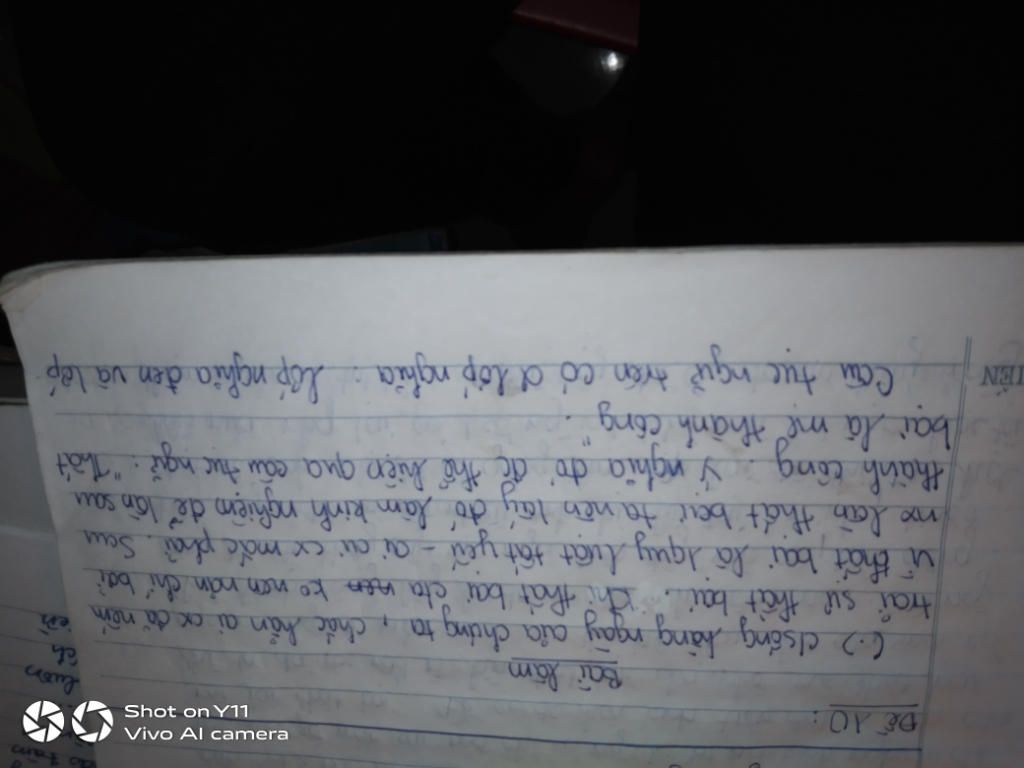 Đề 10:
Bài làm
(.) csống hàng ngày của chúng ta, chắc hẳn ai cx đã nếm
trải sự thất bại. Khi thất bại cta ko nên nản chí bởi
vì thất bại là quy luật tất yếu - ai ai cx mắc phải. Sau
mx lần thất bại ta nên lấy đó làm kinh nghiệm để lần sau
thành công. Ý nghĩa đó đc thể hiện qua câu tục ngữ: "Thất
bại là mẹ thành công".
Câu tục ngữ trên có 2 lớp nghĩa: lớp nghĩa đen và lớp
IỀN
luôn
ch
iến
Shot on Y11
Vivo AI camera